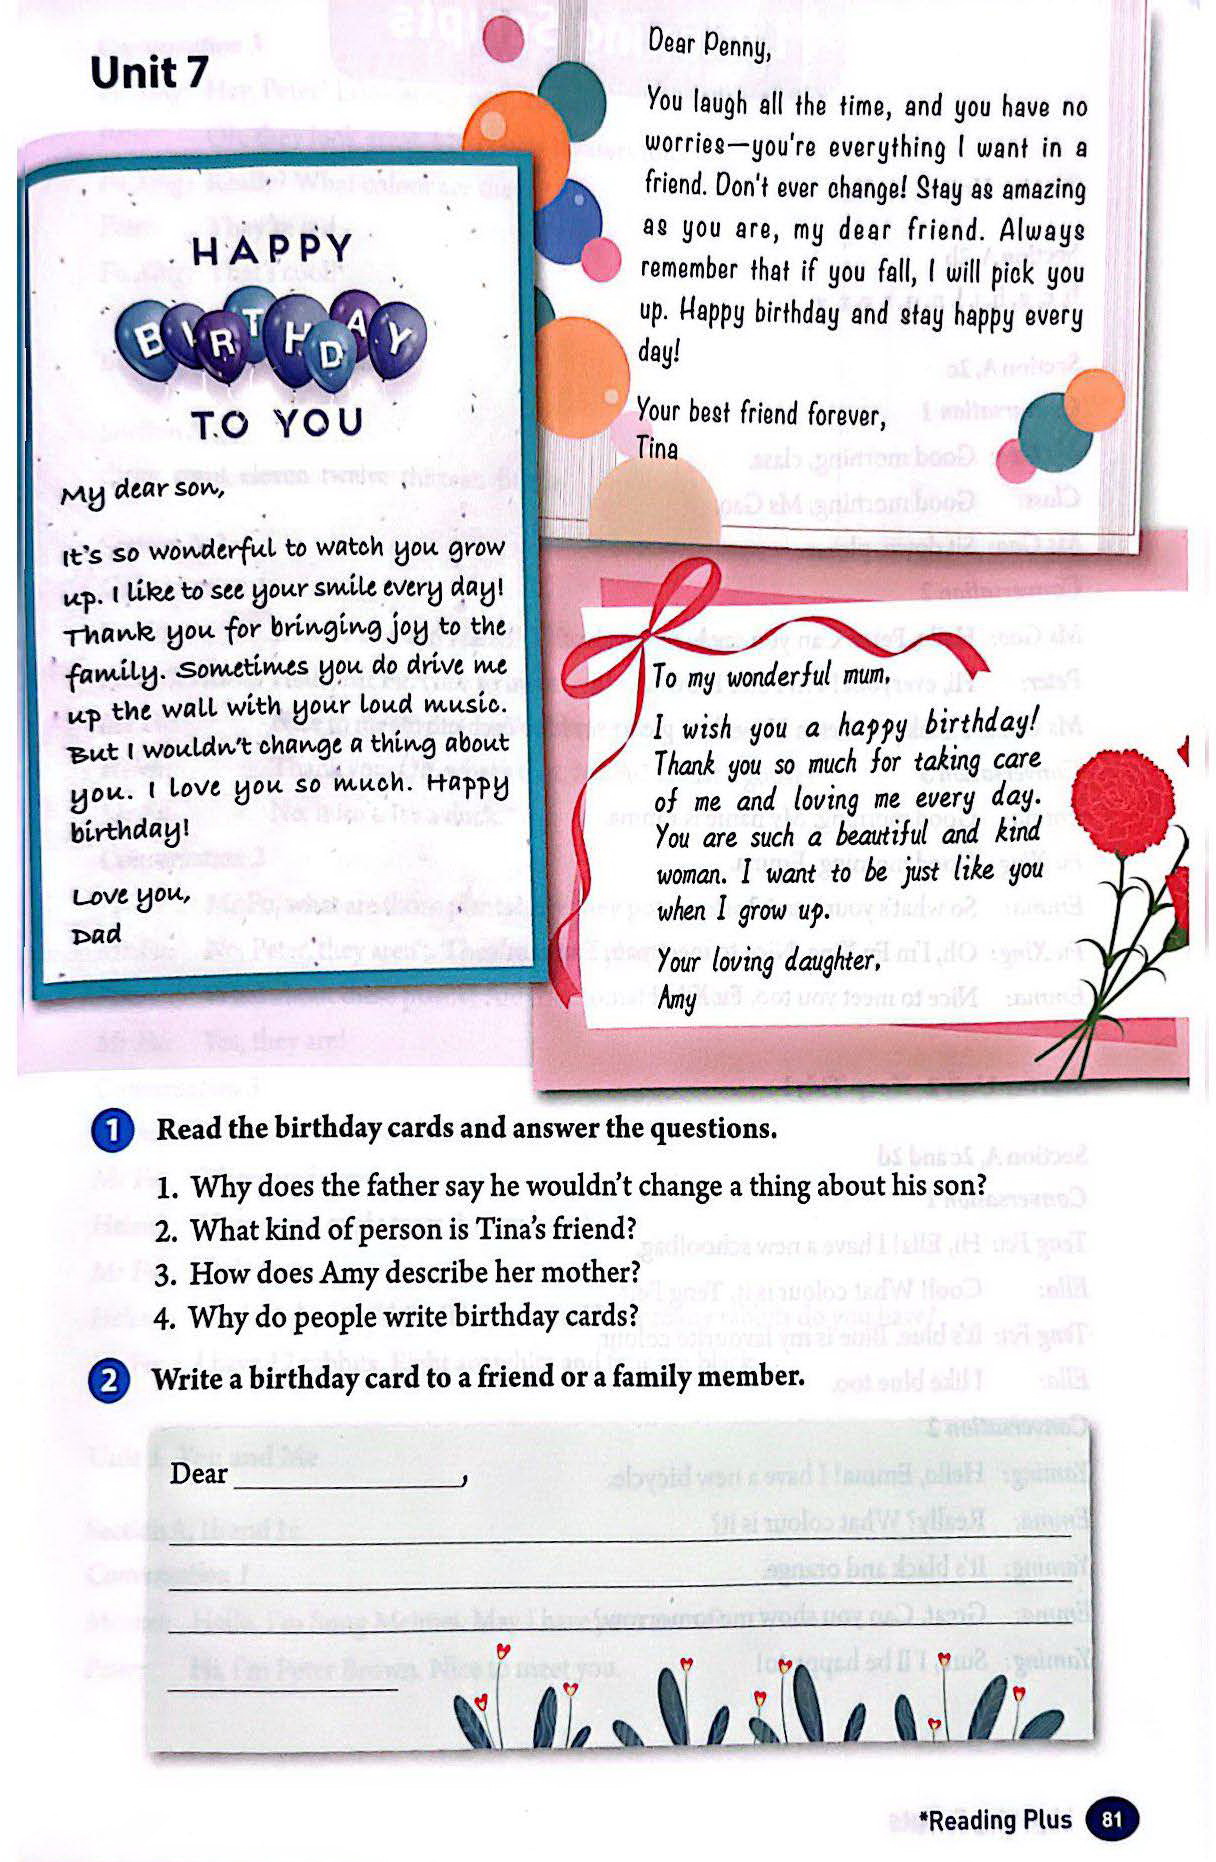 Unit 7
HAPPY
BIRTHDAY
TO YOU
My dear son,
It's so wonderful to watch you grow
up. I like to see your smile every day!
Thank you for bringing joy to the
family. Sometimes you do drive me
up the wall with your loud music.
But I wouldn't change a thing about
you. I love you so much. Happy
birthday!
Love you,
Dad
Dear Penny,
You laugh all the time, and you have no
worries—you're everything I want in a
friend. Don't ever change! Stay as amazing
as you are, my dear friend. Always
remember that if you fall, I will pick you
up. Happy birthday and stay happy every
day!
Your best friend forever,
Tina
To my wonderful mum,
I wish you a happy birthday!
Thank you so much for taking care
of me and loving me every day.
You are such a beautiful and kind
woman. I want to be just like you
when I grow up.
Your loving daughter,
Amy
1 Read the birthday cards and answer the questions.
1. Why does the father say he wouldn't change a thing about his son?
2. What kind of person is Tina's friend?
3. How does Amy describe her mother?
4. Why do people write birthday cards?
2 Write a birthday card to a friend or a family member.
Dear ,
*Reading Plus 81